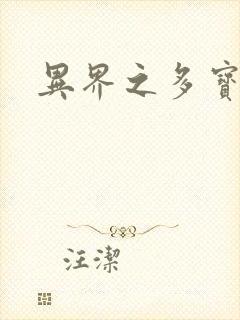 異界之多寶
汪潔